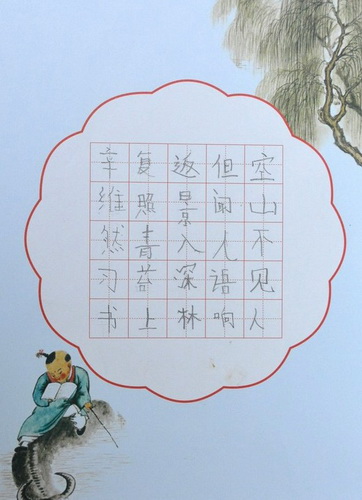 空山不见人
但闻人语响
返景入深林
复照青苔上
辛维然习书